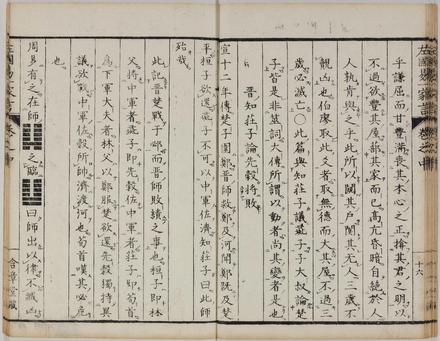 乎謙屈而甘豐滿喪其本心之正揜其君之明以
不過欲豐其屋蔀其家而已髙亢昏暗自絕於人
人孰肯與之乎此所以闃其戶闃其无人三歲不
覿凶也伯廖取此爻者取無德而大其屋不過三
歲必滅亡〇此篇與知荘子議彘子子大叔論楚
子皆是非筮詞大傳所謂以動者尚其變者是也
晋知荘子論先縠將敗
宣十二年傳楚子圍鄭晋師救鄭及河聞鄭既及楚
平桓子欲還彘子不可以中軍佐濟知荘子曰此師
殆哉
此記晋楚戰于邲而晋師敗績之事也桓子即林
父將中軍者彘子即先縠佐中軍者荘子即荀首
為下軍大夫者林父以鄭服楚欲還先縠獨持異
議欲致中軍佐縠所帥濟渡河也荀首嘆其必危
也
周易有之在師之臨曰師出以律不臧凶
十六
含章堂藏